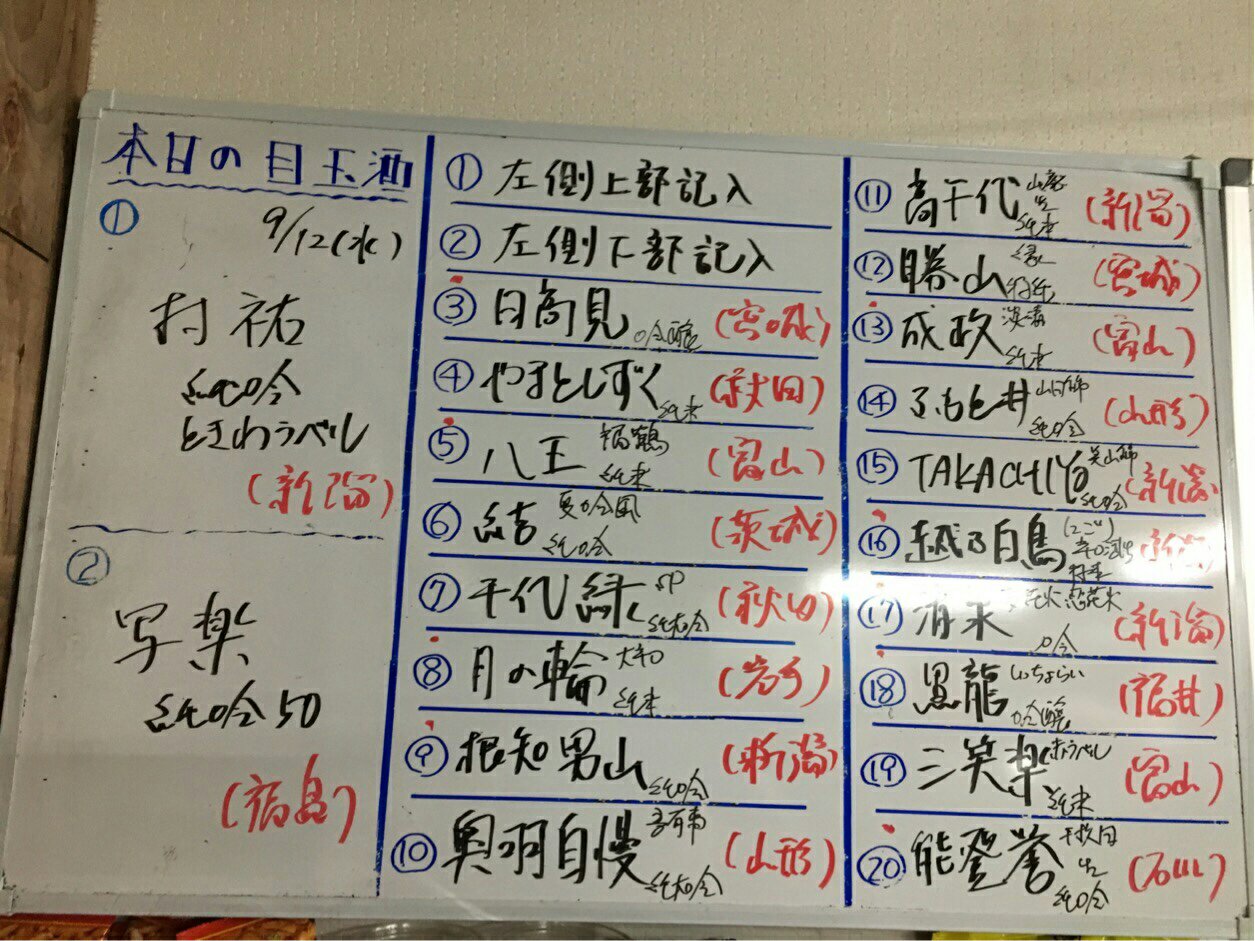 本日の目玉酒
①
9/12(水)
村祐
純吟
ときわラベル
(新潟)
②
写楽
純吟50
(福島)
① 左側上部記入
② 左側下部記入
③ 日高見 吟醸 (宮城)
④ やまとしずく 純米 (秋田)
⑤ 八王 福鶴 純米 (富山)
⑥ 結 夏吟風 純吟 (茨城)
⑦ 千代緑 SP 純大吟 (秋田)
⑧ 月の輪 大和 純米 (岩手)
⑨ 根知男山 純吟 (新潟)
⑩ 奥羽自慢 純大吟 (山形)
⑪ 高千代 山廃 生 純米 (新潟)
⑫ 勝山 縁 特純 (宮城)
⑬ 成政 淡麗 純米 (富山)
⑭ ふもと井 山田錦 純吟 (山形)
⑮ TAKACHIYO 美山錦 純吟 (新潟)
⑯ 越乃白鳥 辛口 特本 (新潟)
⑰ 清泉 吟 (新潟)
⑱ 黒龍 いっちょらい 吟醸 (福井)
⑲ 三笑楽 赤ラベル 純米 (富山)
⑳ 能登誉 生 純吟 (石川)